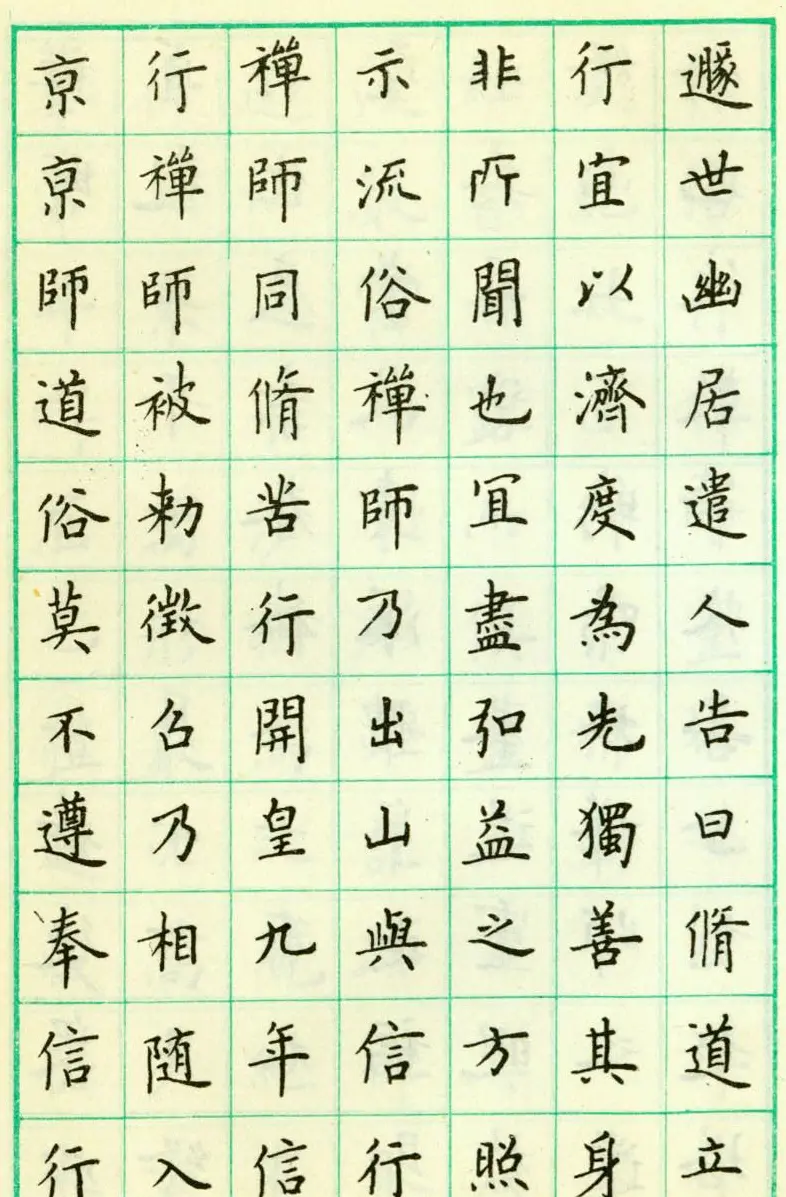 遯世幽居遣人告曰脩道立
行宜以濟度為先獨善其身
非所聞也宜盡弘益之方照
示流俗禪師乃出山與信行
禪師同脩苦行開皇九年信
行禪師被勅徵召乃相随入
京京師道俗莫不遵奉信行